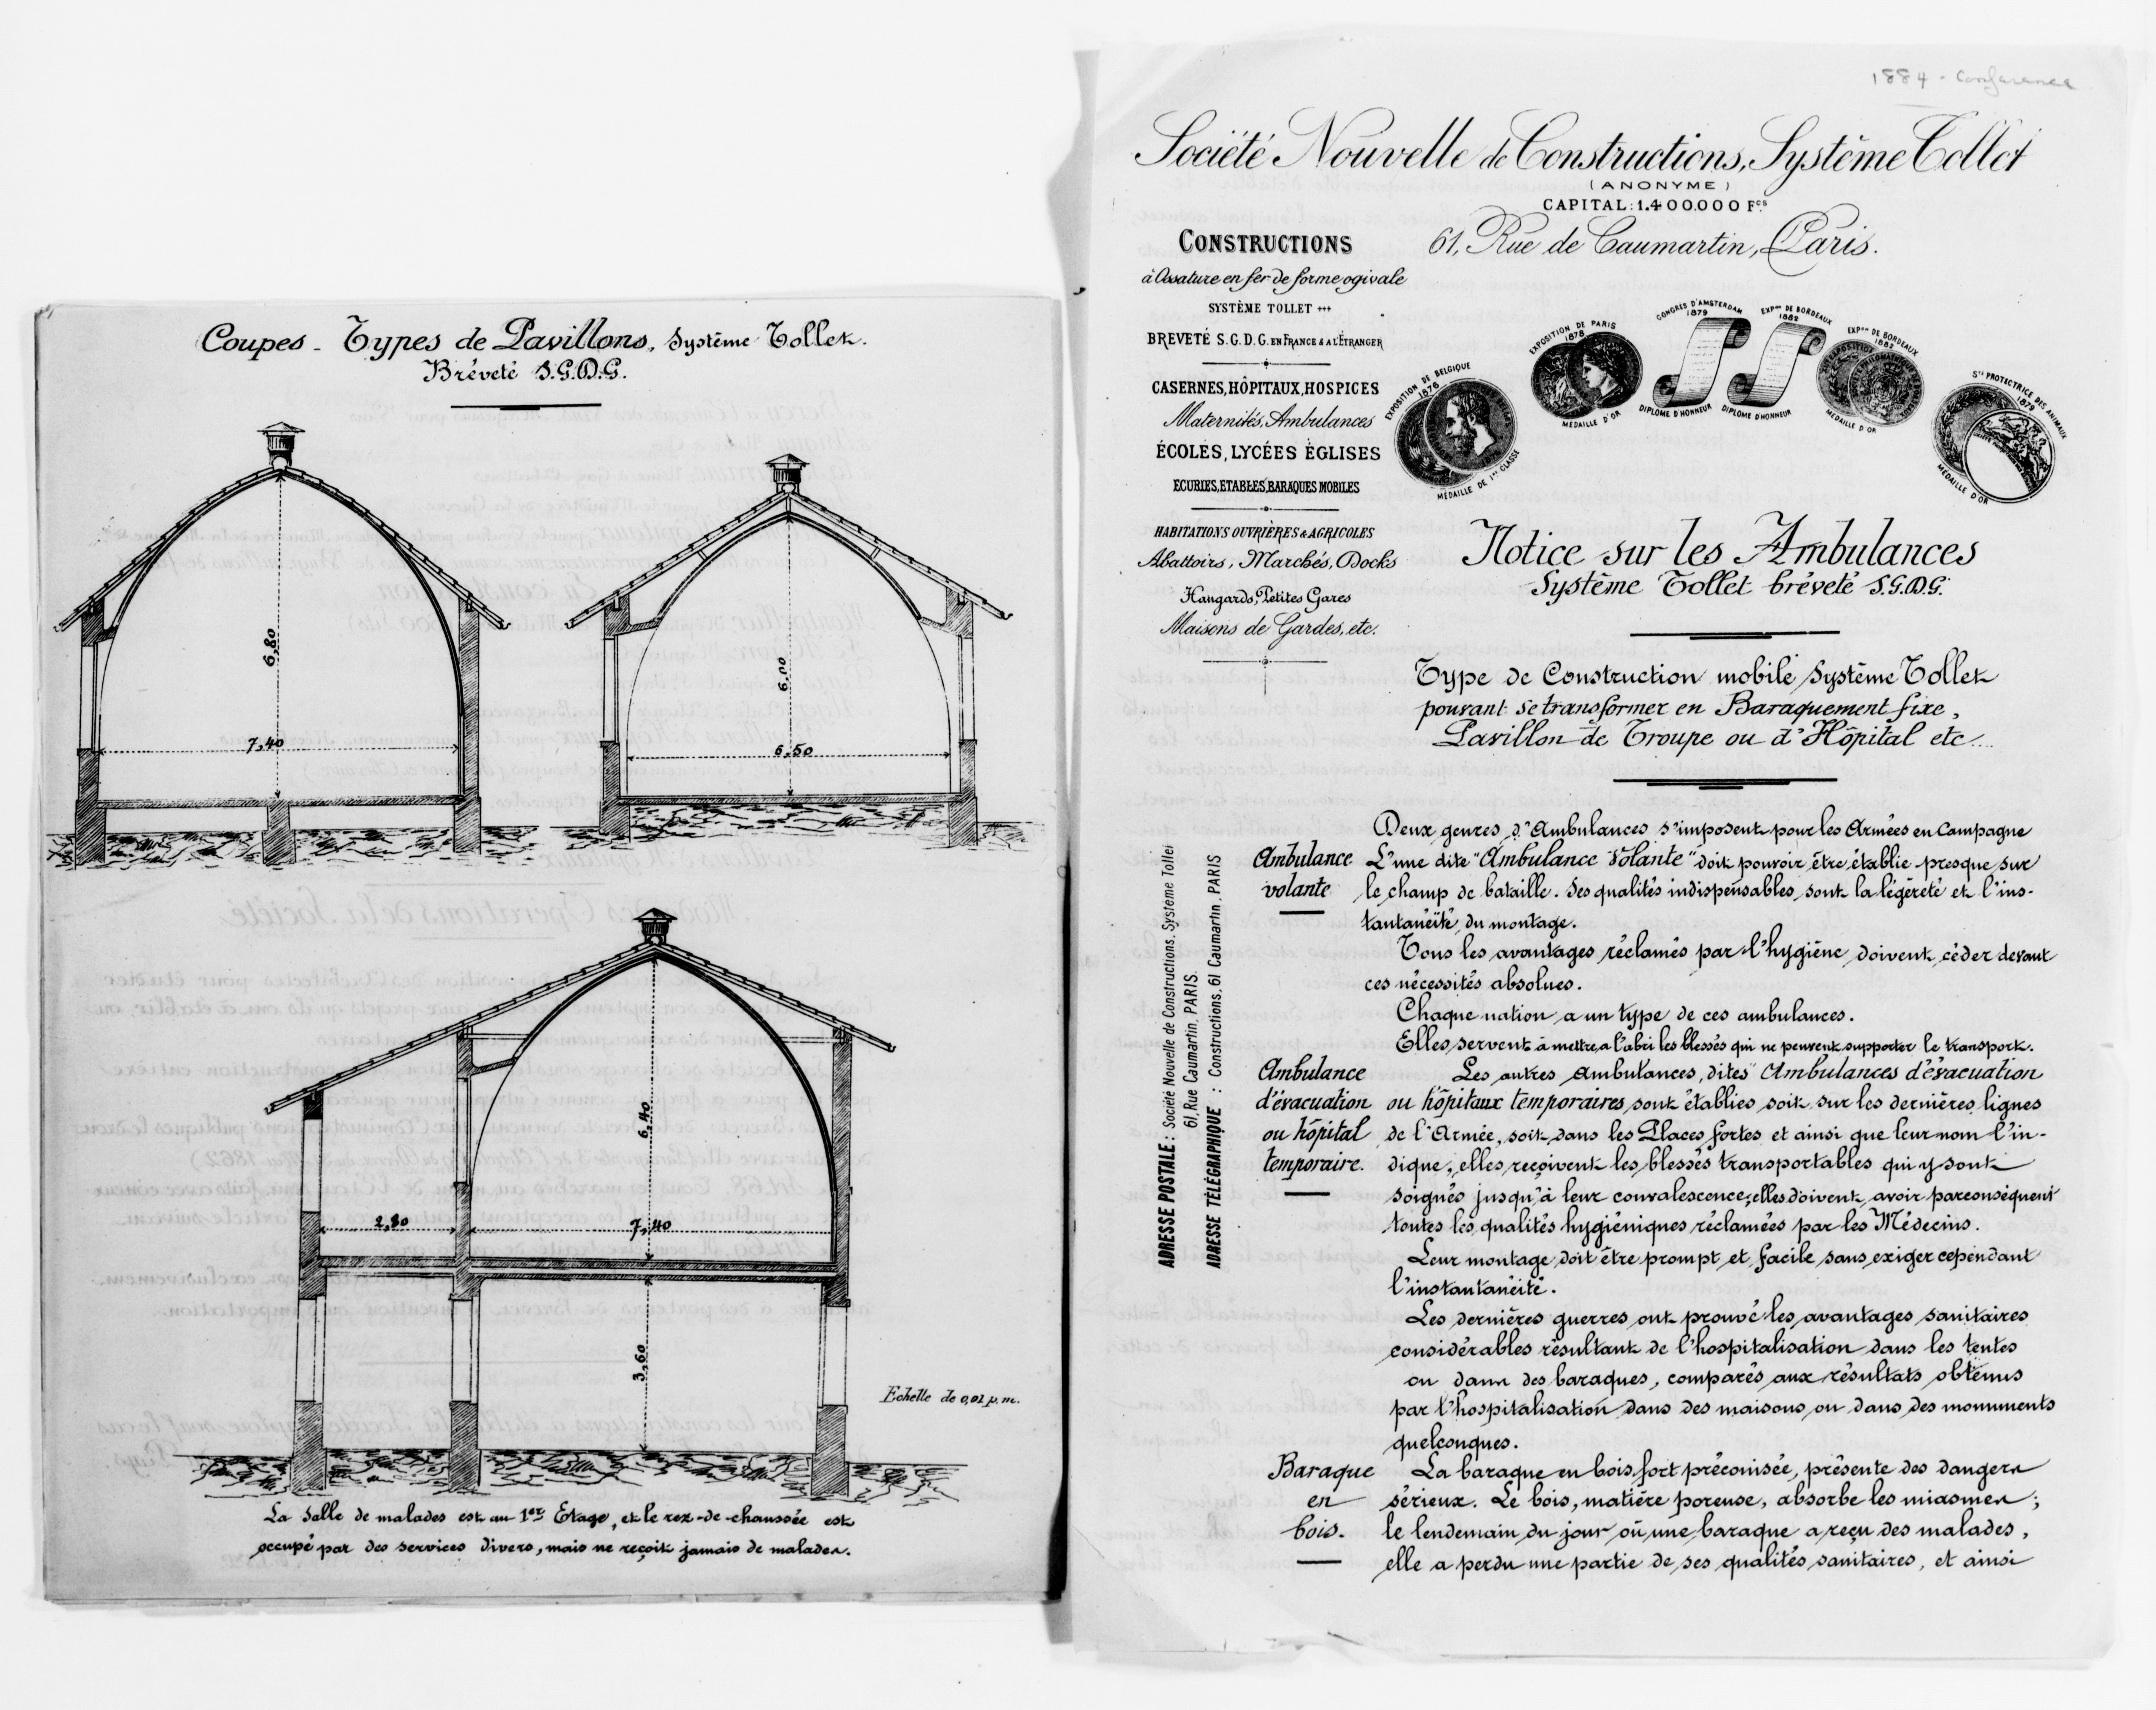 Coupes - Types de Pavillons, Système Tollet.
Bréveté S.G.D.G.
6,80
7,40
6,00
6,50
6,40
2,80
7,40
3,60
Echelle de 0,01 p.m.
La Salle de malades est au 1er Etage, et le rez-de-chaussée est
occupé par des services divers, mais ne reçoit jamais de malades.
1884 - Conference
Société Nouvelle de Constructions, Système Tollet
(ANONYME)
CAPITAL: 1.400.000 Fcs
61, Rue de Caumartin, Paris.
CONSTRUCTIONS
à Ossature en fer de forme ogivale
SYSTÈME TOLLET
BREVETÉ S.G.D.G. EN FRANCE & A L'ÉTRANGER
CASERNES, HÔPITAUX, HOSPICES
Maternités, Ambulances
ÉCOLES, LYCÉES ÉGLISES
ECURIES, ETABLES, BARAQUES MOBILES
HABITATIONS OUVRIÈRES & AGRICOLES
Abattoirs, Marchés, Docks
Hangards, Petites Gares
Maisons de Gardes, etc.
EXPOSITION DE BELGIQUE
1876
MÉDAILLE DE 1re CLASSE
EXPOSITION DE PARIS
1878
MÉDAILLE D'OR
CONGRÈS D'AMSTERDAM
1879
DIPLOME D'HONNEUR
EXPon DE BORDEAUX
1882
DIPLOME D'HONNEUR
EXPon DE BORDEAUX
1882
MÉDAILLE D'OR
Sté PROTECTRICE DES ANIMAUX
1879
MÉDAILLE D'OR
Notice sur les Ambulances
Système Tollet bréveté S.G.D.G.
Type de Construction mobile Système Tollet
pouvant se transformer en Baraquement fixe,
Pavillon de Troupe ou d'Hôpital etc...
ADRESSE POSTALE : Société Nouvelle de Constructions, Système Tollet
61, Rue Caumartin, PARIS.
ADRESSE TÉLÉGRAPHIQUE : Constructions, 61 Caumartin, PARIS
Deux genres d'Ambulances s'imposent pour les Armées en Campagne
Ambulance volante
L'une dite "Ambulance Volante" doit pouvoir être établie presque sur
le champ de bataille. Ses qualités indispensables sont la légèreté et l'ins-
tantanéité du montage.
Tous les avantages réclamés par l'hygiène doivent céder devant
ces nécessités absolues.
Chaque nation a un type de ces ambulances.
Elles servent à mettre a l'abri les blessés qui ne peuvent supporter le transport.
Ambulance d'évacuation ou hôpital temporaire.
Les autres Ambulances, dites "Ambulances d'évacuation
ou hôpitaux temporaires sont établies soit sur les dernières lignes
de l'Armée, soit dans les Places fortes et ainsi que leur nom l'in-
dique, elles reçoivent les blessés transportables qui y sont
soignés jusqu'à leur convalescence; elles doivent avoir par conséquent
toutes les qualités hygiéniques réclamées par les Médecins.
Leur montage doit être prompt et facile sans exiger cependant
l'instantanéité.
Les dernières guerres ont prouvé les avantages sanitaires
considérables résultant de l'hospitalisation dans les tentes
ou dans des baraques, comparés aux résultats obtenus
par l'hospitalisation dans des maisons ou dans des monuments
quelconques.
Baraque en bois.
La baraque en bois fort préconisée, présente des dangers
sérieux. Le bois, matière poreuse, absorbe les miasmes;
le lendemain du jour où une baraque a reçu des malades,
elle a perdu une partie de ses qualités sanitaires, et ainsi